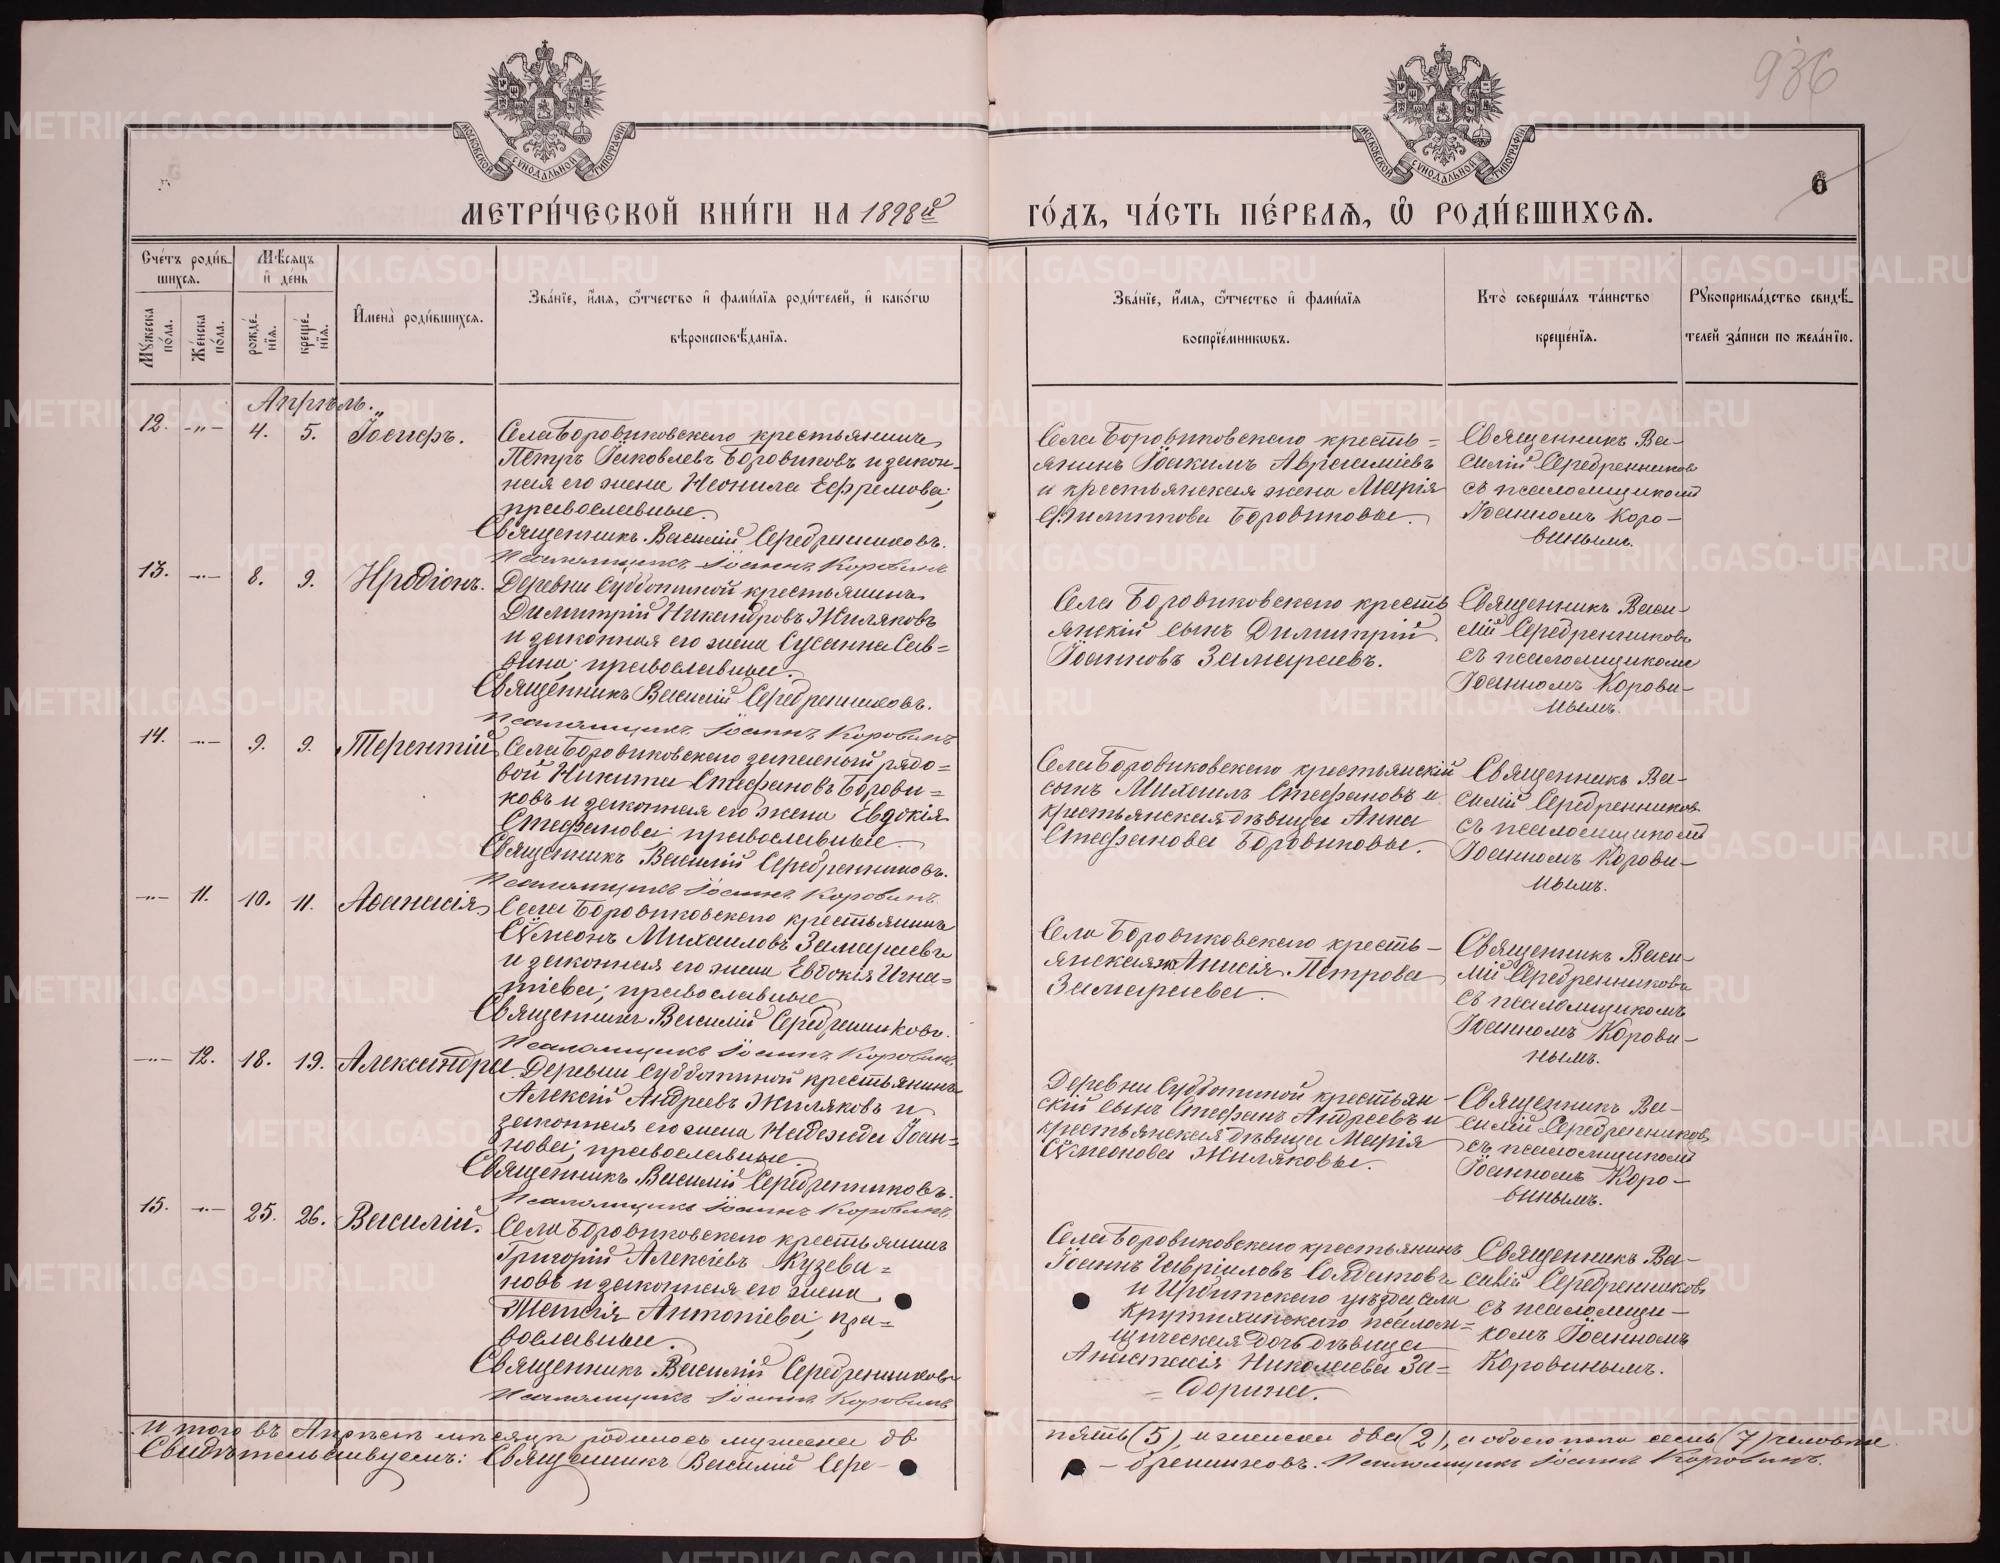 936
6
МОСКОВСКОЙ СУНОДАЛЬНОЙ ТИПОГРАФІИ
МОСКОВСКОЙ СУНОДАЛЬНОЙ ТИПОГРАФІИ
МЕТРИ́ЧЕСКОЙ КНИ́ГИ НА 1898й
ГО́ДЪ, ЧА́СТЬ ПЕ́РВАѦ, Ѽ РОДИ́ВШИХСѦ.
Сче́тъ роди́в-
шихсѧ.
Мѣ́сѧцъ
и҆ де́нь
Мꙋ́жеска
по́ла.
Же́нска
по́ла.
рожде́-
нїѧ.
креще́-
нїѧ.
И҆мена̀ роди́вшихсѧ.
Зва́нїе, и҆́мѧ, ѻ҆́тчество и҆ фами́лїѧ роди́телей, и҆ како́гѡ
вѣроисповѣ́данїѧ.
Зва́нїе, и҆́мѧ, ѻ҆́тчество и҆ фами́лїѧ
воспрїе́мникѡвъ.
Кто̀ соверша́лъ та́инство
креще́нїѧ.
Рꙋкоприкла́дство свидѣ́-
телей за́писи по жела́нїю.
Апрѣль.
12. -"- 4. 5. Іосифъ.
Села Боровиковскаго крестьянинъ
Петръ Іаковлевъ Боровиковъ и закон-
ная его жена Неонила Ефремова;
православные.
Священникъ Василій Серебренниковъ.
Псаломщикъ Іоаннъ Коровинъ
Села Боровиковскаго кресть=
янинъ Іоакимъ Авраамiевъ
и крестьянская жена Марія
Филиппова Боровиковы.
Священникъ Ва-
силій Серебренниковъ
съ псаломщикомъ
Іоанномъ Коро-
винымъ.
13. -"- 8. 9. Иродіонъ.
Деревни Субботиной крестьянинъ
Димитрій Никандровъ Жиляковъ
и законная его жена Сусанна Сав=
вина; православные.
Священникъ Василій Серебренниковъ.
Псаломщикъ Іоаннъ Коровинъ
Села Боровиковскаго кресть
янскій сынъ Димитрій
Іоанновъ Замараевъ.
Священникъ Васи-
лій Серебренниковъ
съ псаломщикомъ
Іоанномъ Корови-
нымъ.
14. -"- 9. 9. Терентій
Села Боровиковскаго запасный рядо=
вой Никита Стефановъ Борови=
ковъ и законная его жена Евдокія
Стефанова; православные.
Священникъ Василій Серебренниковъ.
Псаломщикъ Іоаннъ Коровинъ.
Села Боровиковскаго крестьянскій
сынъ Михаилъ Стефановъ и
крестьянская дѣвица Анна
Стефанова Боровиковы.
Священникъ Ва-
силій Серебренниковъ
съ псаломщикомъ
Іоанномъ Корови-
нымъ.
-"- 11. 10. 11. Аѳанасія
Села Боровиковскаго крестьянинъ
Сѵмеонъ Михаиловъ Замараевъ
и законная его жена Евдокія Игна=
тіева; православные
Священникъ Василій Серебренниковъ.
Псаломщикъ Іоаннъ Коровинъ
Села Боровиковскаго кресть-
янская ж Анисія Петрова
Замараева.
Священникъ Васи-
лій Серебренниковъ
съ псаломщикомъ
Іоанномъ Корови-
нымъ.
-"- 12. 18. 19. Александра
Деревни Субботиной крестьянинъ
Алексій Андреевъ Жиляковъ и
законная его жена Надежда Іоан=
нова; православные.
Священникъ Василій Серебренниковъ.
Псаломщикъ Іоаннъ Коровинъ.
Деревни Субботиной крестьян-
скій сынъ Стефанъ Андреевъ и
крестьянская дѣвица Марія
Сѵмеонова Жиляковы.
Священникъ Ва-
силій Серебренниковъ
съ псаломщикомъ
Іоанномъ Коро-
винымъ.
15. -"- 25. 26. Василій.
Села Боровиковскаго крестьянинъ
Григорій Алексіевъ Кузева=
новъ и законная его жена
Таисія Антоніева; пра=
вославные.
Священникъ Василій Серебренниковъ
Псаломщикъ Іоаннъ Коровинъ
Села Боровиковскаго крестьянинъ
Іоаннъ Гавріиловъ Солдатовъ
и Ирбитскаго уѣзда села
Крутихинскаго псалом=
щическая дочь дѣвица
Анастасія Николаева За=
=дорина.
Священникъ Ва-
силій Серебренниковъ
съ псаломщи-
комъ Іоанномъ
Коровинымъ.
Итого въ Апрѣлѣ мѣсяцѣ родилось мужеска
пять (5), и женска два (2), а обоего пола семь (7) человѣкъ.
Свидѣтельствуемъ: Священникъ Василій Сере-
-бренниковъ. Псаломщикъ Іоаннъ Коровинъ.
METRIKI.GASO-URAL.RU